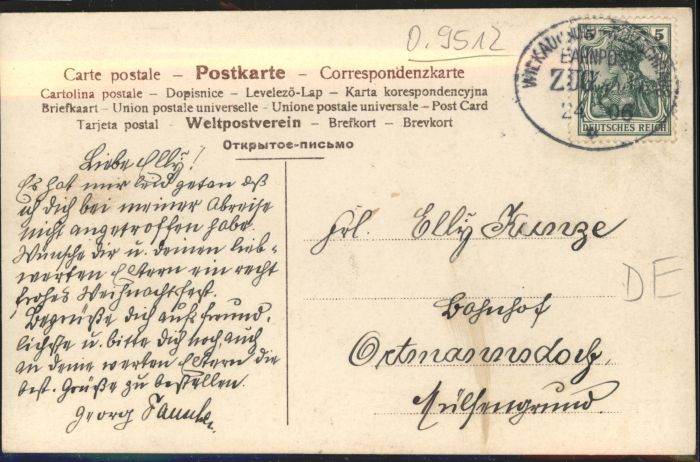 0.9512
Carte postale – Postkarte – Correspondenzkarte
Cartolina postale – Dopisnice – Levelező-Lap – Karta korespondencyjna
Briefkaart – Union postale universelle – Unione postale universale – Post Card
Tarjeta postal – Weltpostverein – Brefkort – Brevkort
Открытое-письмо
5 5
DEUTSCHES REICH
BAHNPOST
ZUG
24 06
Liebe Elly!
Es hat mir leid getan daß
ich dich bei meiner Abreise
nicht angetroffen habe.
Wünsche dir u. deinen lieb-
werten Eltern ein recht
frohes Weihnachtsfest.
Begrüße dich aufs freund-
lichste u. bitte dich noch, auch
an deine werten Eltern die
best. Grüße zu bestellen.
Georg
Frl. Elly Kunze
Bahnhof
Ortmannsdorf,
Mülsengrund.
DE